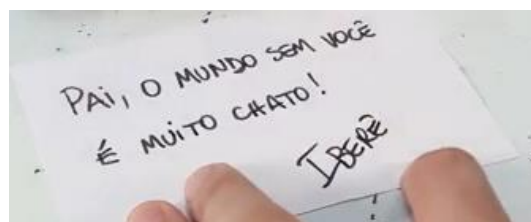 PAi, O MUNDO SEM VOCÊ
É MUiTO CHATO!
IBERÊ